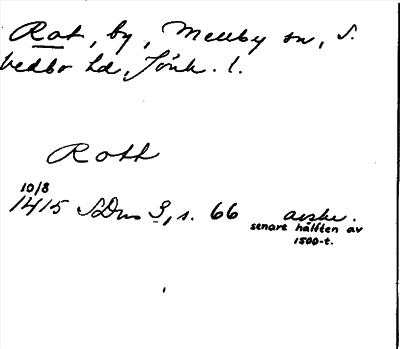 Rat, by, Mellby sn, S.
Vedbo hd, Jönk. l.
Rott
10/8
1415 SDns 3, s. 66 avskr.
senare hälften av
1500-t.